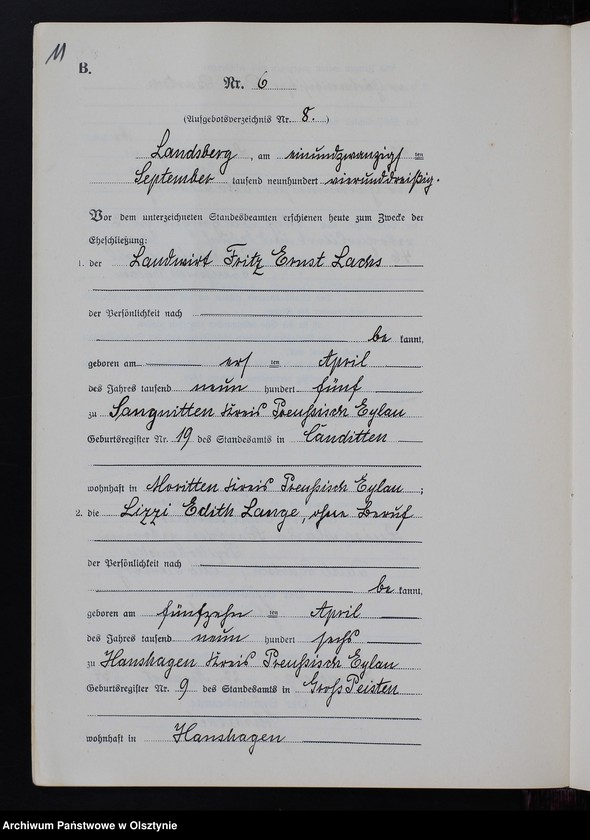 11
B.
Nr. 6
(Aufgebotsverzeichnis Nr. 8.)
Landsberg, am einundzwanzigsten
September tausend neunhundert vierunddreißig.
Vor dem unterzeichneten Standesbeamten erschienen heute zum Zwecke der
Eheschließung:
1. der Landwirt Fritz Ernst Lachs
der Persönlichkeit nach
be kannt,
geboren am ersten April
des Jahres tausend neun hundert fünf
zu Sangnitten Kreis Preußisch Eylau
Geburtsregister Nr. 19 des Standesamts in Canditten
wohnhaft in Moritten Kreis Preußisch Eylau;
2. die Lizzi Edith Lange, ohne Beruf
der Persönlichkeit nach
be kannt,
geboren am fünfzehnten April
des Jahres tausend neun hundert sechs
zu Hanshagen Kreis Preußisch Eylau
Geburtsregister Nr. 9 des Standesamts in Groß Peisten
wohnhaft in Hanshagen
Archiwum Państwowe w Olsztynie